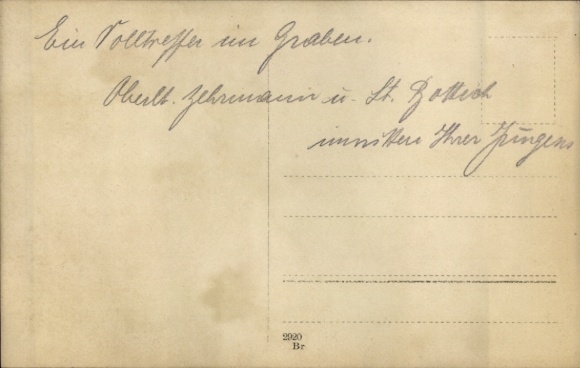 Ein Volltreffer im Graben.
Oberlt. Zehrmann u. Lt. Bottich
inmitten Ihrer Jungens
2920
Br